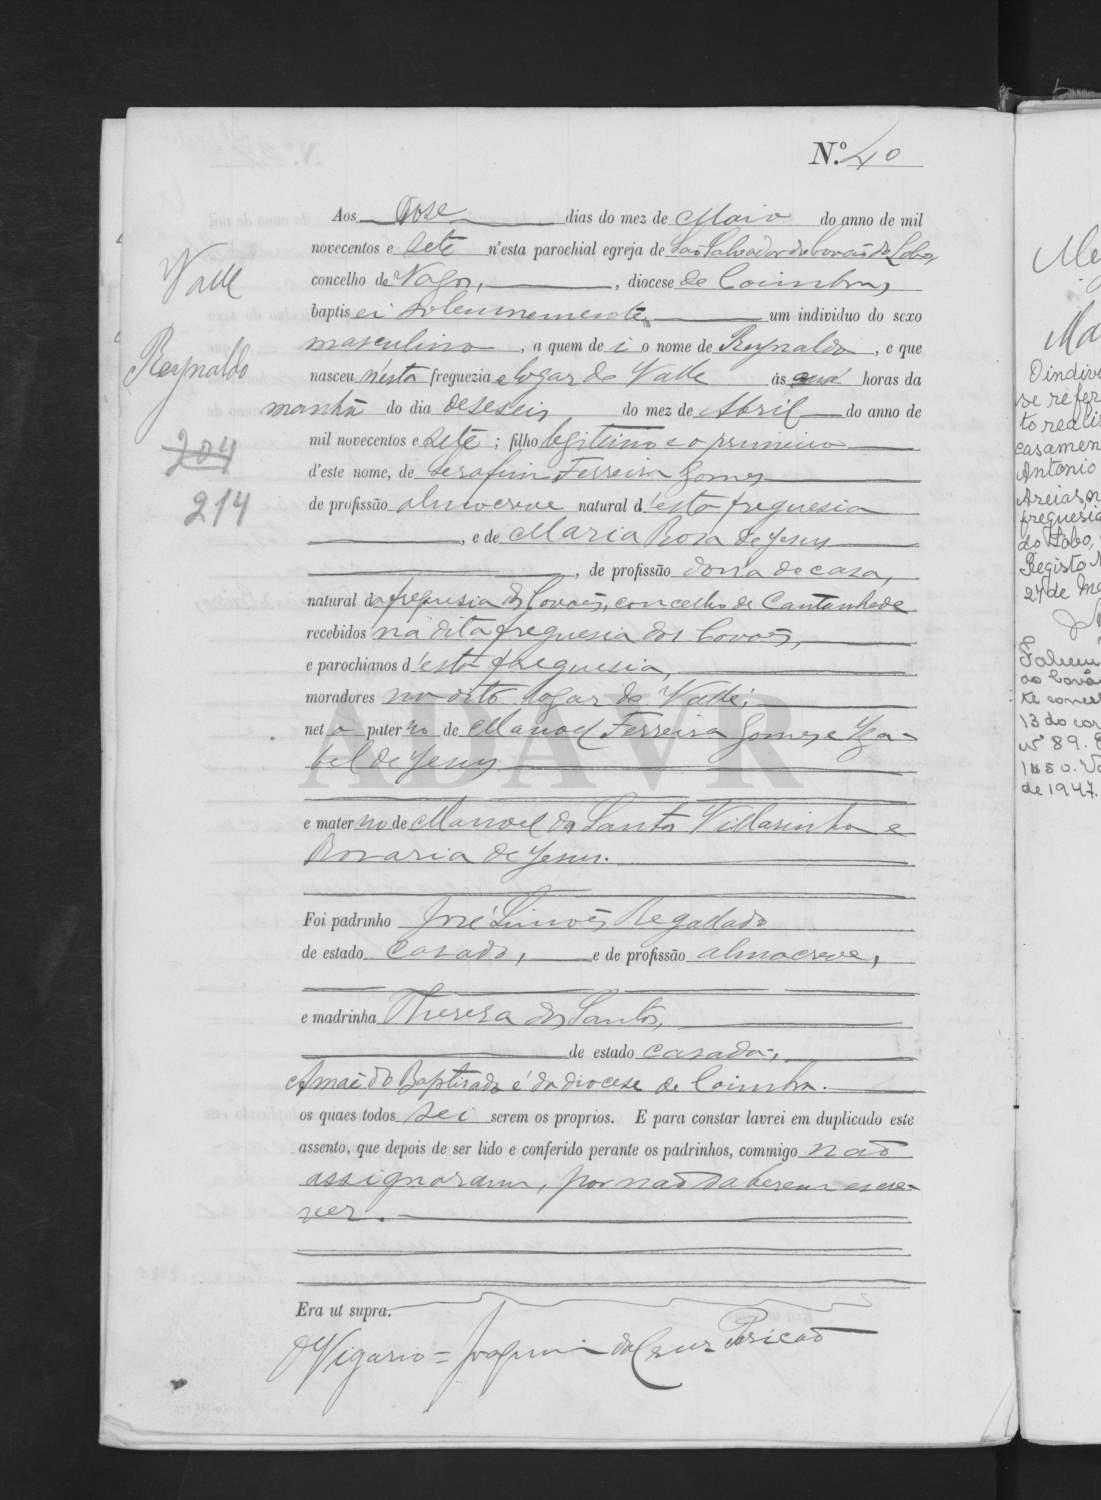 N.º 40
Aos Dose dias do mez de Maio do anno de mil
novecentos e sete n'esta parochial egreja de São Salvador de Covão de Lobo,
concelho de Vagos, , diocese de Coimbra,
baptisei solemnemente um individuo do sexo
masculino , a quem dei o nome de Reynaldo , e que
nasceu n'esta freguezia e logar do Valle ás horas da
manhã do dia deseseis do mez de Abril do anno de
mil novecentos e sete ; filho legitimo e o primeiro
d'este nome, de Serafim Ferreira Gomes
de profissão almocreve natural d'esta freguesia
, e de Maria Rosa de Jesus
, de profissão dona de casa,
natural da freguesia dos Covões, concelho de Cantanhede
recebidos na dita freguesia dos Covões,
e parochianos d'esta freguesia,
moradores no dito logar do Valle;
neto paterno de Manoel Ferreira Gomes e Iza-
bel de Jesus
e materno de Manoel dos Santos Villarinho e
Rosaria de Jesus.
Foi padrinho José Simões Regallado
de estado casado, e de profissão almocreve,
e madrinha Thereza dos Santos,
de estado casada;
A mãe do Baptisado é da diocese de Coimbra.
os quaes todos sei serem os proprios. E para constar lavrei em duplicado este
assento, que depois de ser lido e conferido perante os padrinhos, commigo não
assignaram, por não saberem escre-
ver.
Era ut supra.
O Vigario = Joaquim da Cruz
Valle
Reynaldo
204
214
ADAVR
O indiv
se refer
to reali
casamen
Antonio
Areias, n
freguesia
do Lobo,
Registo
27 de Ma
13 do cor
nº 89.
1850.
de 1947.